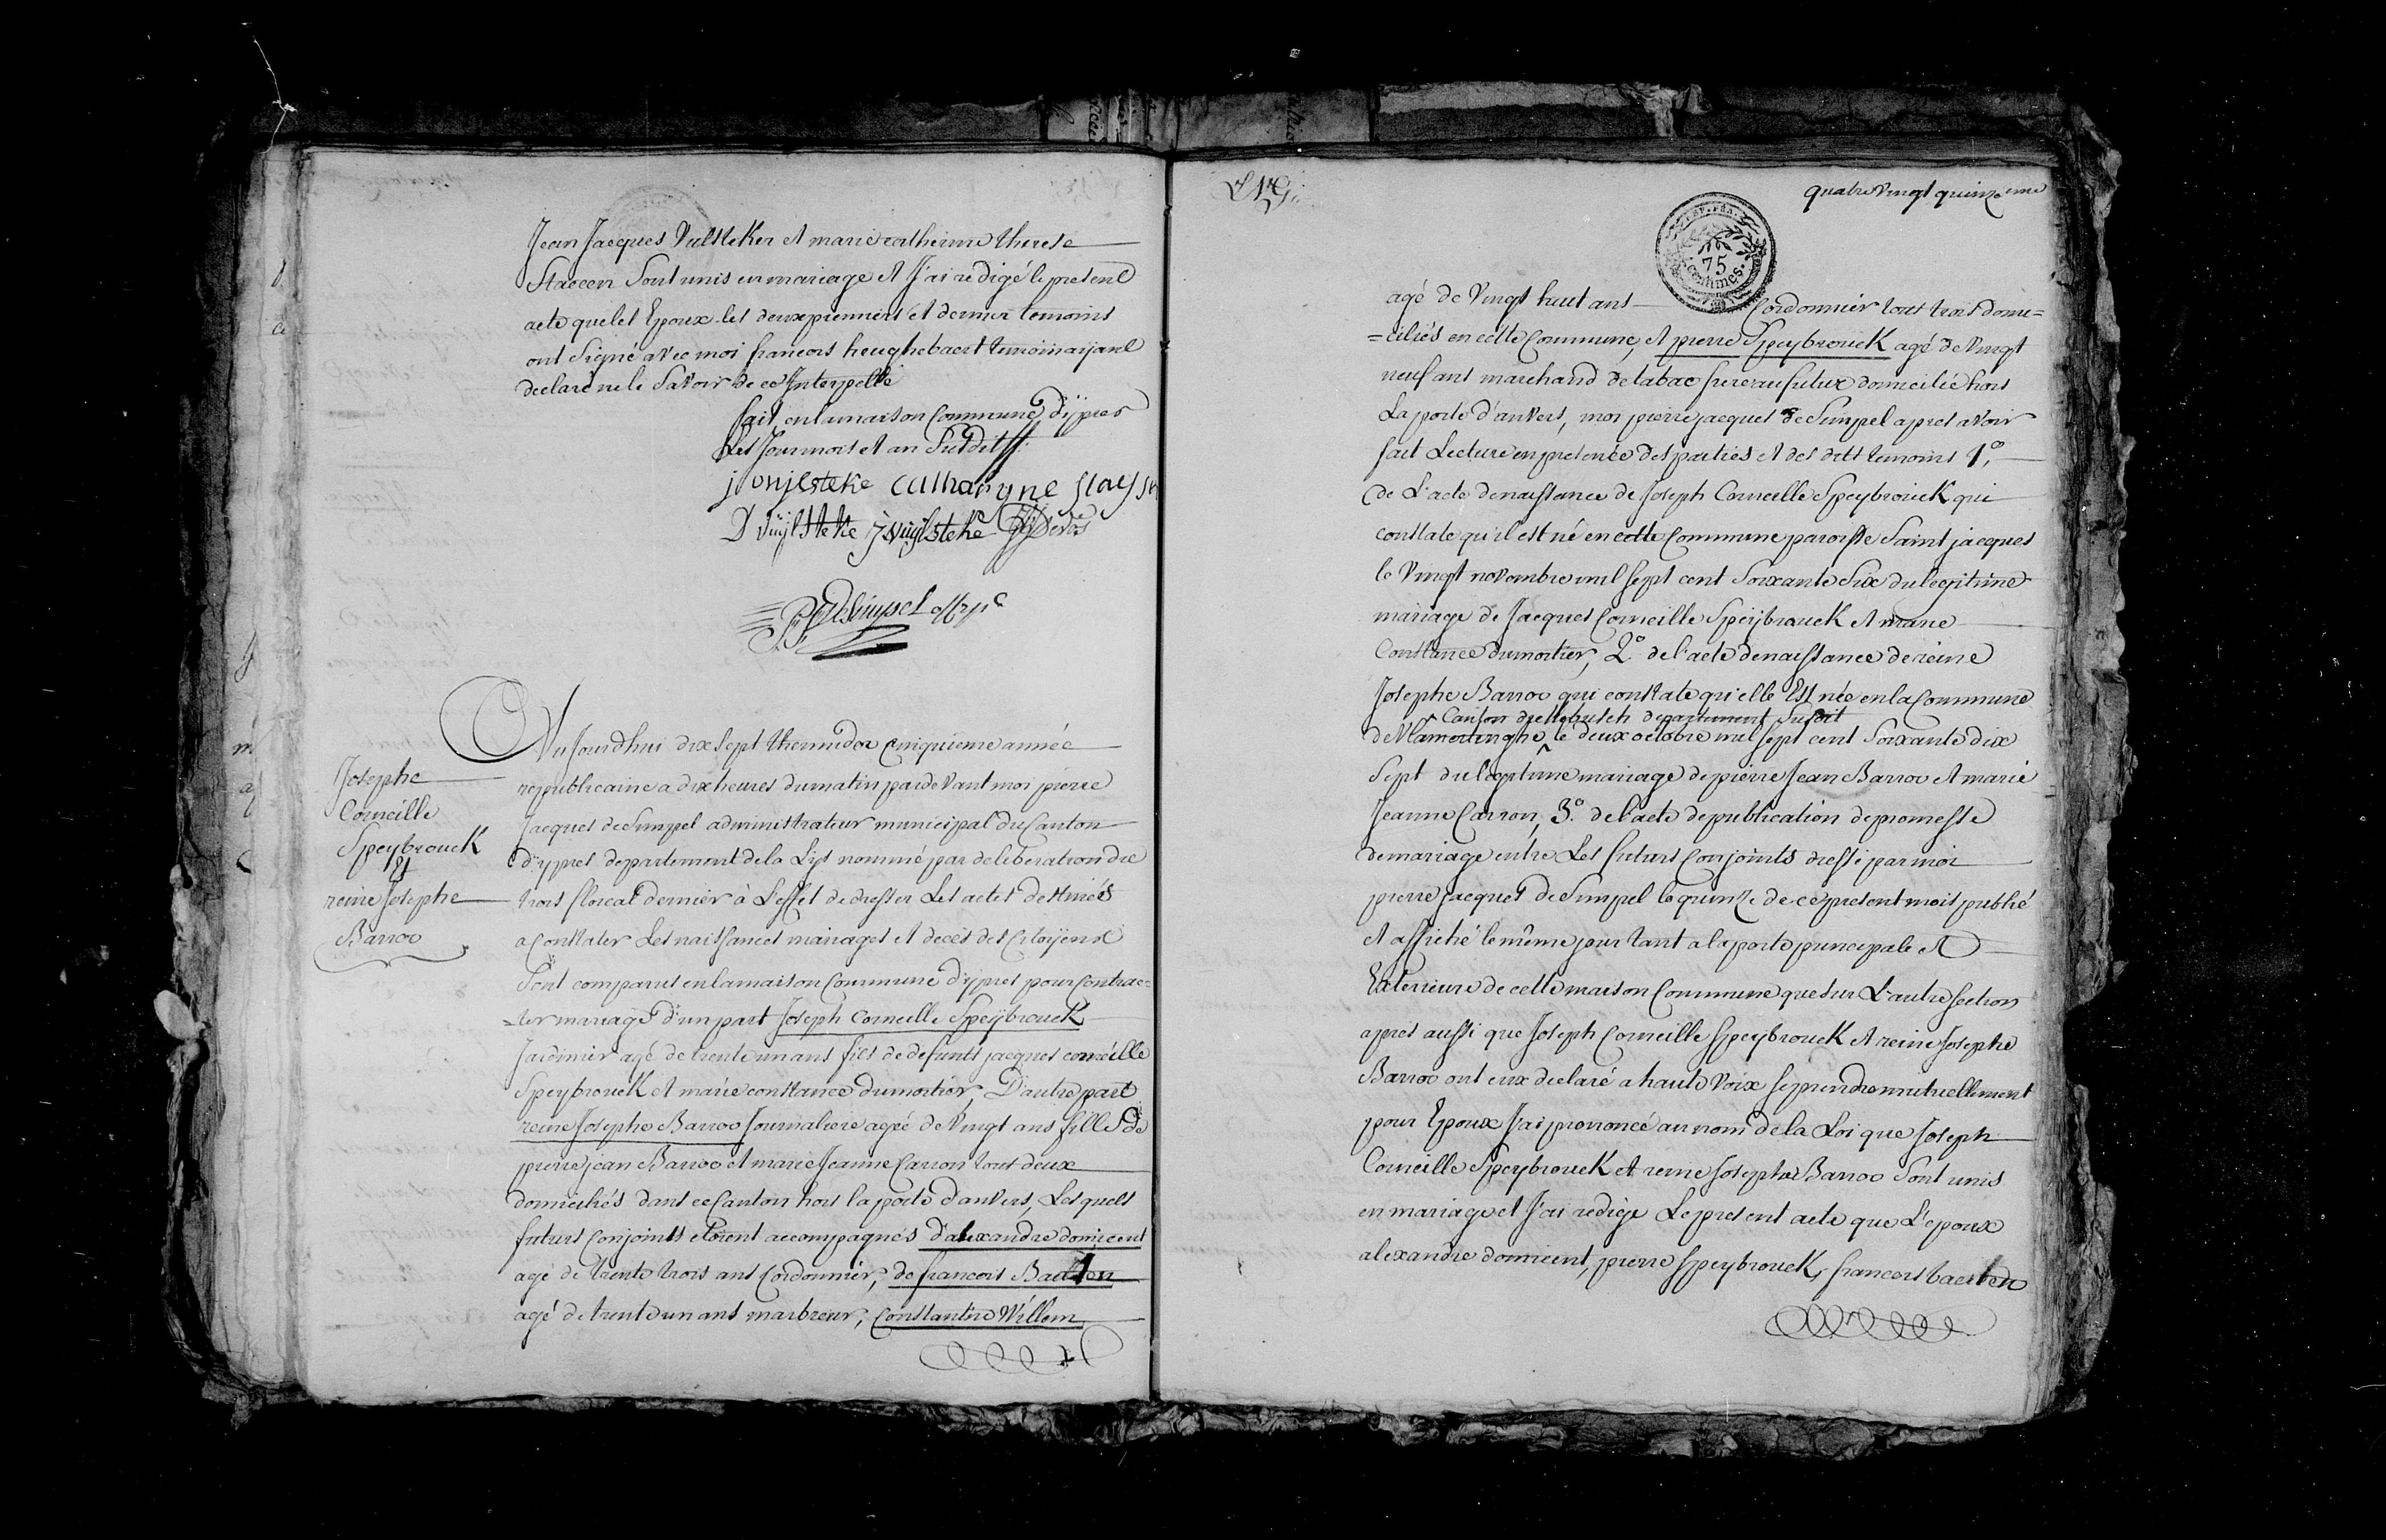 Jean Jacques Vulsteker et marie catherine therese
Staecen sont unis en mariage et j'ai redigé le present
acte que les Epoux les deux premiers et dernier temoins
ont signé avec moi francois heughebaert temoin aijant
declaré ne le savoir de ce Interpellé
fait en la maison Commune d'ijpres
Les Jour mois et an susdits
catharyne
D vuijlsteke j vuijlsteke
Josephe
Corneille
Speybrouck
Et
reine Josephe
Barroo
Aujourdhui dix sept thermidor Cinquieme année
republicaine a dix heures du matin pardevant moi pierre
Jacques de Simpel administrateur municipal du Canton
d'ypres departement de la Lijs nommé par deliberation du
trois floreal dernier à L'effet de dresser Les actes destinés
a Constater Les naissances mariages et decès des Citoijens
Sont comparus en la maison Commune d'ypres pour Contrac=
=ter mariage d'un part Joseph Corneille Speijbrouck
Jardinier agé de trente un ans fils de defunts jacques corneille
Speybrouck et marie constance dumortier, D'autre part
reine Josephe Barroo Journaliere agée de Vingt ans fille de
pierre jean Barroo et marie Jeanne Carron tout deux
domiciliés dans ce Canton hors la porte d'anvers, Lesquels
futurs Conjoints etoient accompagnés d'alexandre domicent
agé de trente trois ans Cordonnier, de francois
agé de trente un ans marbreur, Constantin Willem
quatre Vingt quinzieme
75
centimes.
agé de Vingt huit ans Cordonnier tous trois domi=
=ciliés en cette Commune, et pierre Speybrouck agé de Vingt
neuf ans marchand de tabac frere au futur domicilié hors
La porte d'anvers, moi pierre jacques de Simpel apres avoir
fait Lecture en presence des parties et des dits temoins 1.°
de L'acte de naissance de Joseph Corneille Speybrouck qui
constate qu'il est né en cette Commune paroisse Saint jacques
le Vingt novembre mil sept cent Soixante Six du legitime
mariage de Jacques Corneille Speijbrouck et marie
Constance dumortier, 2.° de l'acte de naissance de reine
Josephe Barroo qui constate qu'elle Est née en la Commune
Canton departement susdit
de Vlamertinghe, le deux octobre mil sept cent Soixante dix
Sept du legitime mariage de pierre Jean Barroo et marie
Jeanne Carron, 3.° de l'acte de publication de promesse
de mariage entre Les futurs Conjoints dressé par moi
pierre jacques de Simpel le quinze de ce present mois publié
et affiché le même jour tant a la porte principale et
Exterieure de cette maison Commune que sur L'autre section
apres aussi que Joseph Corneille Speybrouck et reine Josephe
Barroo ont eux declaré a haute Voix se prendre mutuellement
pour Epoux j'ai prononcé au nom de la Loi que Joseph
Corneille Speybrouck et reine Josephe Barroo Sont unis
en mariage et j'ai redigé Le present acte que L'epoux
alexandre domicent, pierre Speybrouck, francois